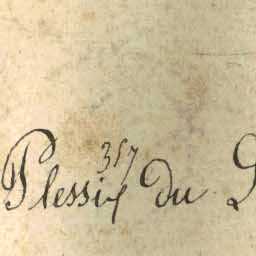 317
Plessix du